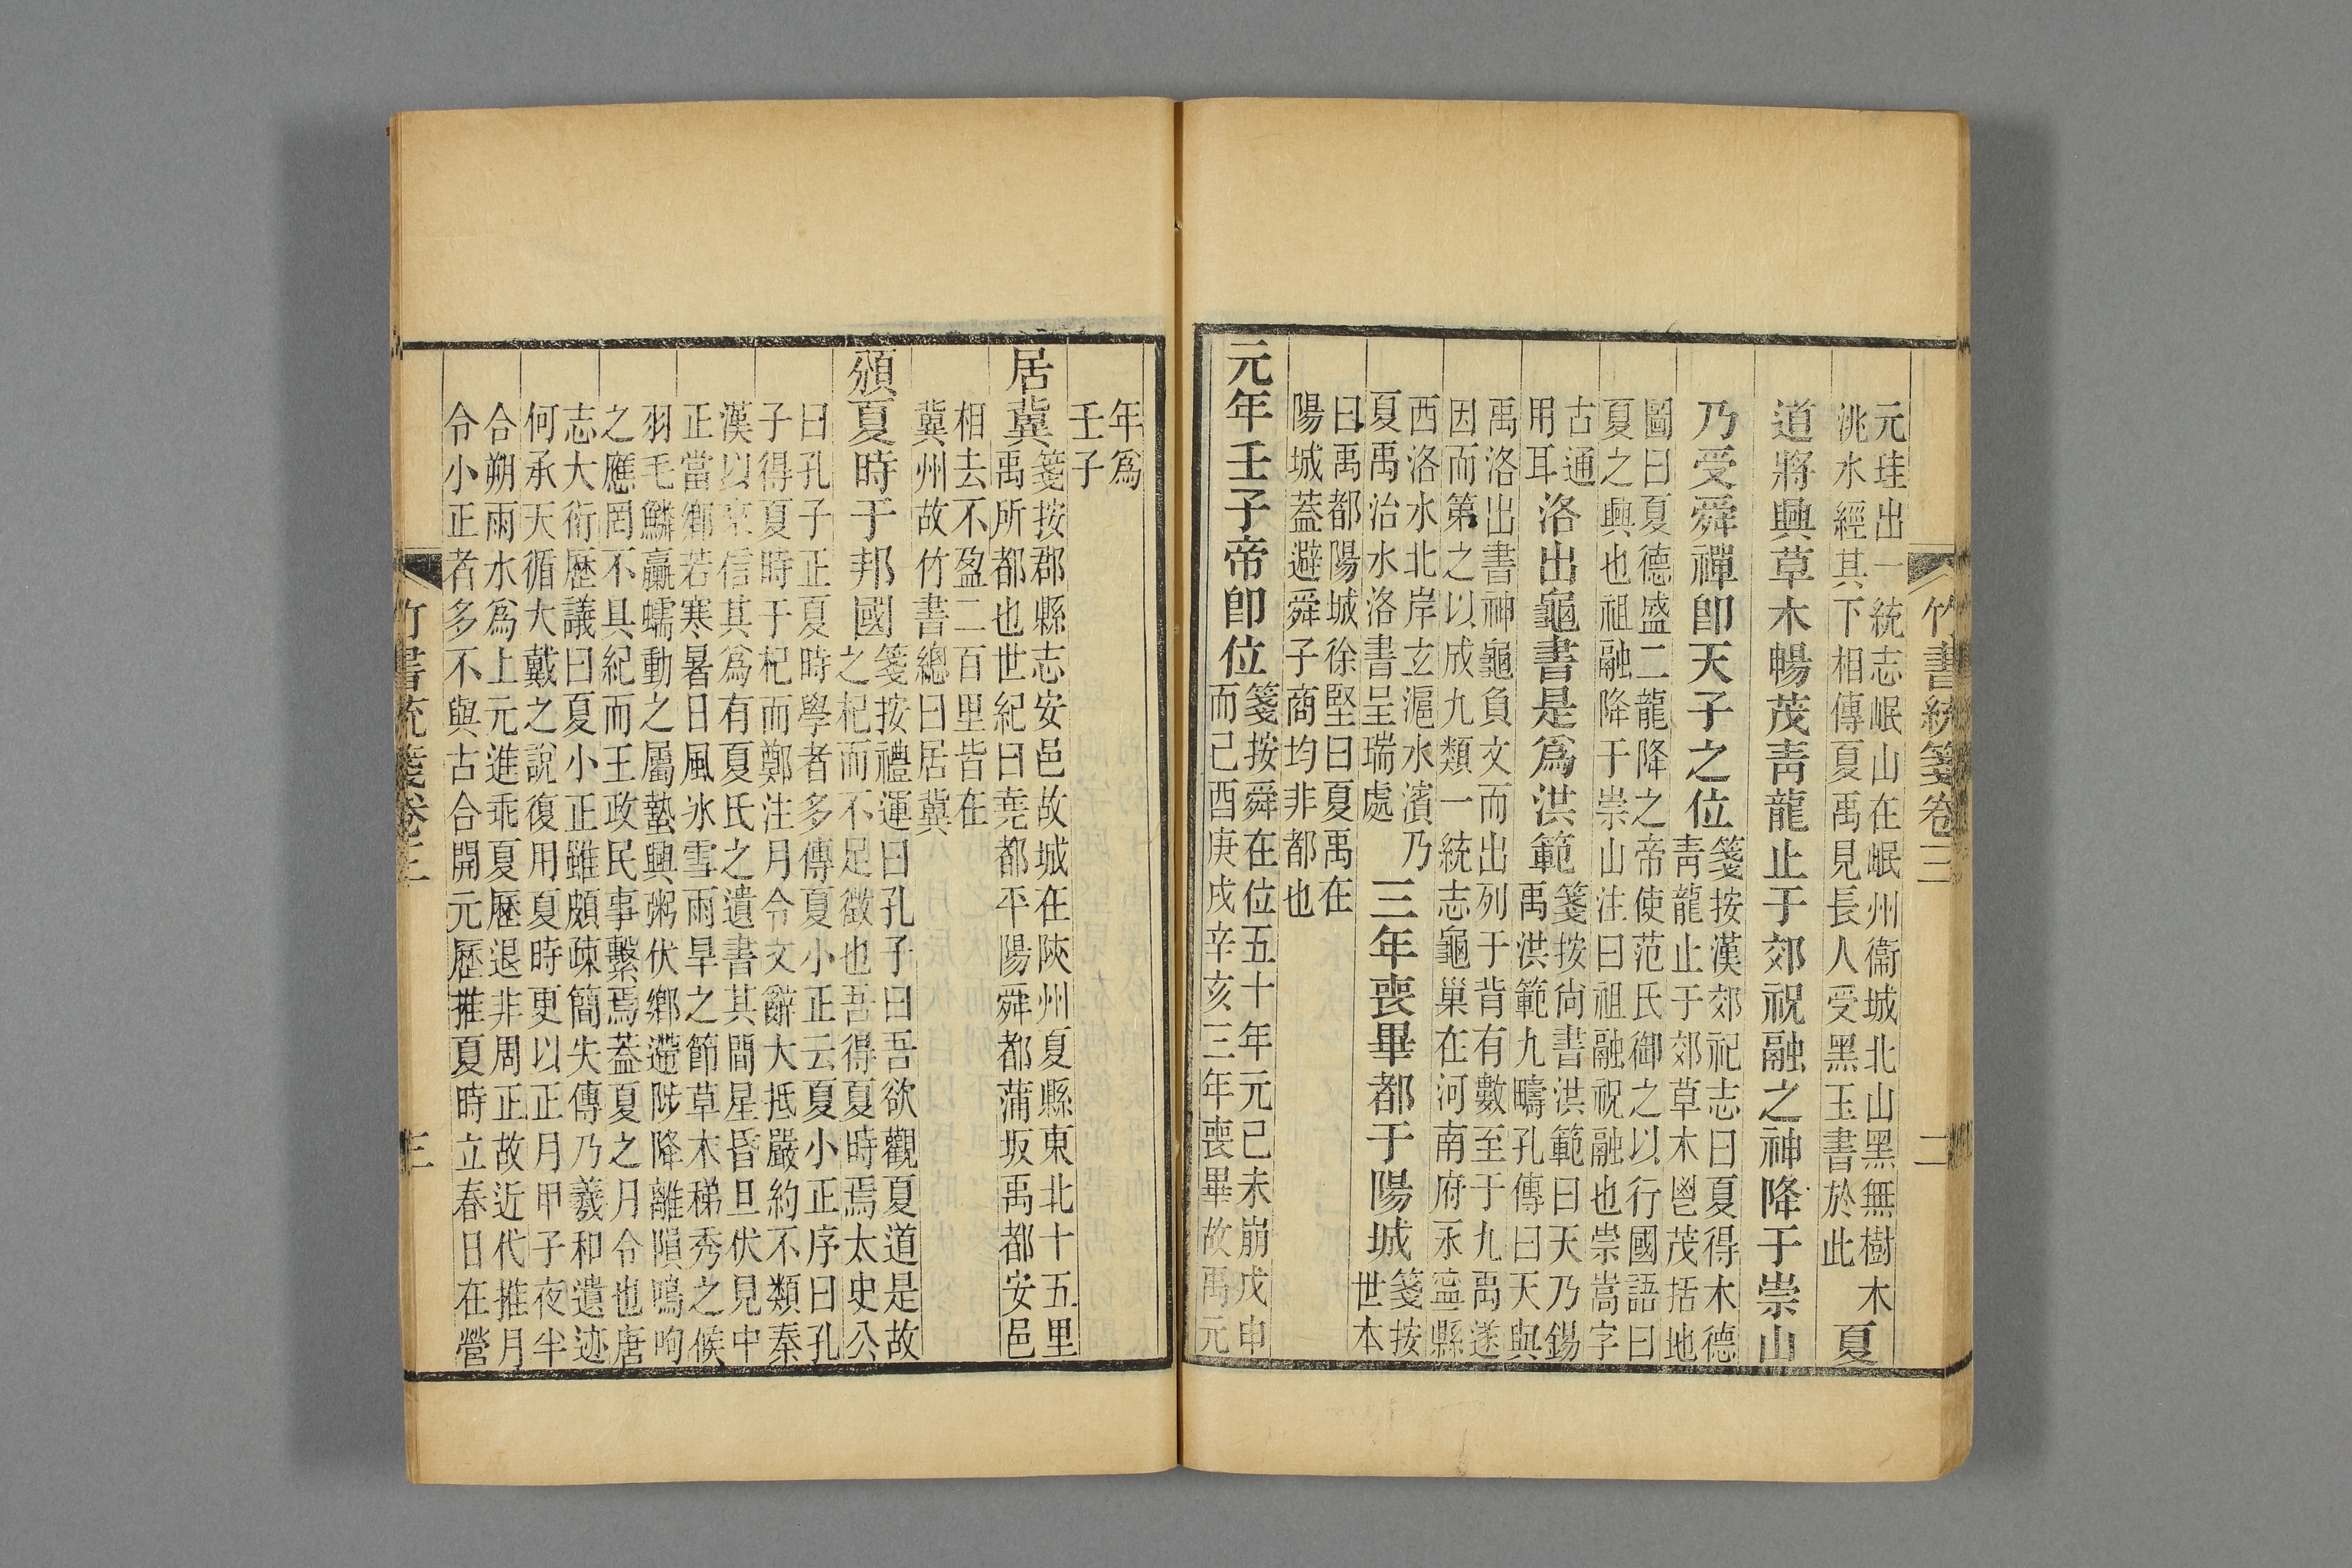 竹書統箋卷三　二
元珪出一統志岷山在岷州衞城北山黑無樹木
洮水經其下相傳夏禹見長人受黑玉書於此
夏
道將興草木暢茂青龍止于郊祝融之神降于崇山
乃受舜禪卽天子之位
箋按漢郊祀志曰夏得木德
青龍止于郊草木鬯茂括地
圖曰夏德盛二龍降之帝使范氏御之以行國語曰
夏之興也祖融降于崇山注曰祖融祝融也崇嵩字
古通
用耳
洛出龜書是爲洪範
箋按尙書洪範曰天乃錫
禹洪範九疇孔傳曰天與
禹洛出書神龜負文而出列于背有數至于九禹遂
因而第之以成九類一統志龜巢在河南府永寧縣
西洛水北岸玄滬水濱乃
夏禹治水洛書呈瑞處
三年喪畢都于陽城
箋按
世本
曰禹都陽城徐堅曰夏禹在
陽城蓋避舜子商均非都也
元年壬子帝卽位
箋按舜在位五十年元己未崩戊申
而己酉庚戌辛亥三年喪畢故禹元
年爲
壬子
居冀
箋按郡縣志安邑故城在陝州夏縣東北十五里
禹所都也世紀曰堯都平陽舜都蒲坂禹都安邑
相去不盈二百里皆在
冀州故竹書總曰居冀
頒夏時于邦國
箋按禮運曰孔子曰吾欲觀夏道是故
之杞而不足徵也吾得夏時焉太史公
曰孔子正夏時學者多傳夏小正云夏小正序曰孔
子得夏時于杞而鄭注月令文辭大抵嚴約不類秦
漢以來信其爲有夏氏之遺書其間星昏旦伏見中
正當鄉若寒暑日風氷雪雨旱之節草木稊秀之候
羽毛鱗臝蠕動之屬蟄興粥伏鄉遰陟降離隕鳴呴
之應罔不具紀而王政民事繫焉蓋夏之月令也唐
志大衍歷議曰夏小正雖頗疎簡失傳乃羲和遺迹
何承天循大戴之說復用夏時更以正月甲子夜半
合朔雨水爲上元進乖夏歷退非周正故近代推月
令小正者多不與古合開元歷推夏時立春日在營
竹書統箋卷三　三